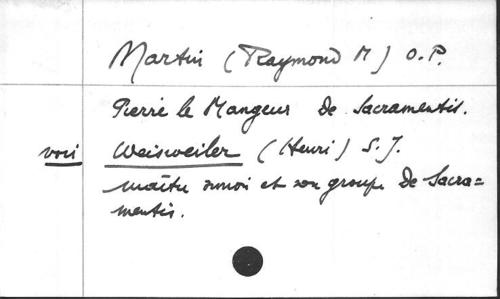 Martin (Raymond M) O.P.
Pierre le Mangeur De Sacramentis.
voir Weisweiler (Henri) S.J.
maître Simon et son groupe De Sacra=
mentis.